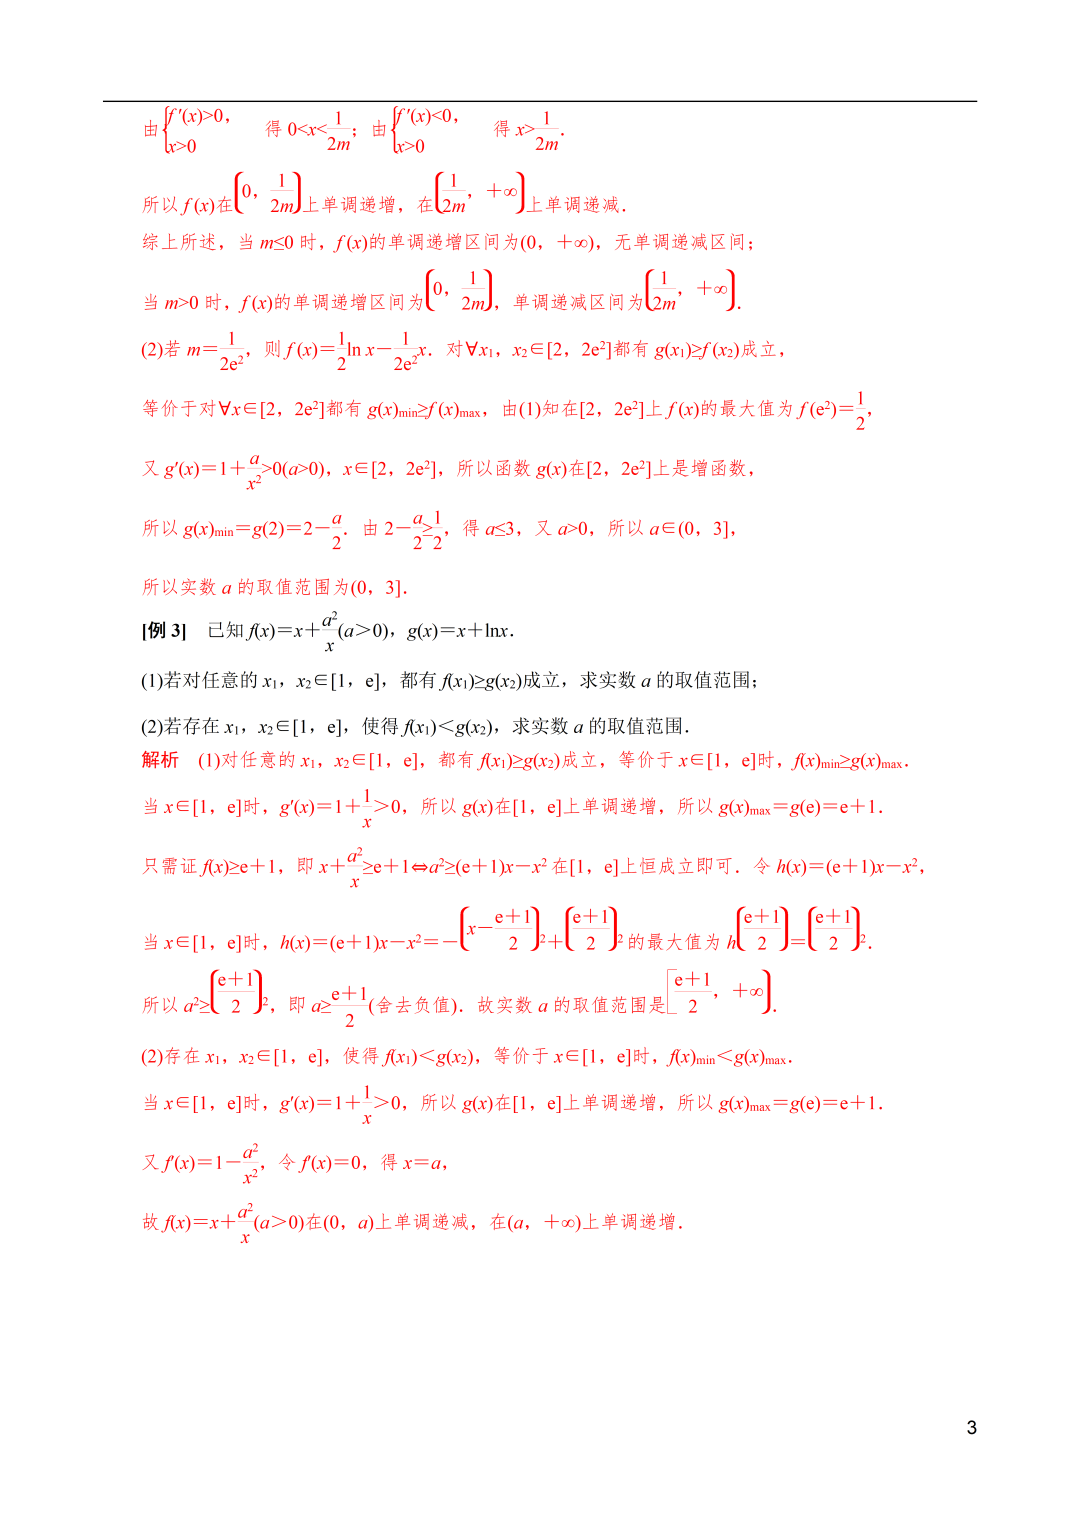 由{f ′(x)>0， x>0 得 0<x<1/2m；由{f ′(x)<0， x>0 得 x>1/2m．
所以 f (x)在(0，1/2m)上单调递增，在(1/2m，＋∞)上单调递减．
综上所述，当 m≤0 时，f (x)的单调递增区间为(0，＋∞)，无单调递减区间；
当 m>0 时，f (x)的单调递增区间为(0，1/2m)，单调递减区间为(1/2m，＋∞)．
(2)若 m＝1/2e²，则 f (x)＝1/2 ln x－1/2e² x．对∀x₁，x₂∈[2，2e²]都有 g(x₁)≥f (x₂)成立，
等价于对∀x∈[2，2e²]都有 g(x)min≥f (x)max，由(1)知在[2，2e²]上 f (x)的最大值为 f (e²)＝1/2，
又 g′(x)＝1＋a/x²>0(a>0)，x∈[2，2e²]，所以函数 g(x)在[2，2e²]上是增函数，
所以 g(x)min＝g(2)＝2－a/2．由 2－a/2≥1/2，得 a≤3，又 a>0，所以 a∈(0，3]，
所以实数 a 的取值范围为(0，3]．
[例 3] 已知 f(x)＝x＋a²/x(a＞0)，g(x)＝x＋lnx．
(1)若对任意的 x₁，x₂∈[1，e]，都有 f(x₁)≥g(x₂)成立，求实数 a 的取值范围；
(2)若存在 x₁，x₂∈[1，e]，使得 f(x₁)＜g(x₂)，求实数 a 的取值范围．
解析 (1)对任意的 x₁，x₂∈[1，e]，都有 f(x₁)≥g(x₂)成立，等价于 x∈[1，e]时，f(x)min≥g(x)max．
当 x∈[1，e]时，g′(x)＝1＋1/x＞0，所以 g(x)在[1，e]上单调递增，所以 g(x)max＝g(e)＝e＋1．
只需证 f(x)≥e＋1，即 x＋a²/x≥e＋1⇔a²≥(e＋1)x－x² 在[1，e]上恒成立即可．令 h(x)＝(e＋1)x－x²，
当 x∈[1，e]时，h(x)＝(e＋1)x－x²＝－(x－(e＋1)/2)²＋((e＋1)/2)² 的最大值为 h((e＋1)/2)＝((e＋1)/2)²．
所以 a²≥((e＋1)/2)²，即 a≥(e＋1)/2(舍去负值)．故实数 a 的取值范围是[(e＋1)/2，＋∞)．
(2)存在 x₁，x₂∈[1，e]，使得 f(x₁)＜g(x₂)，等价于 x∈[1，e]时，f(x)min＜g(x)max．
当 x∈[1，e]时，g′(x)＝1＋1/x＞0，所以 g(x)在[1，e]上单调递增，所以 g(x)max＝g(e)＝e＋1．
又 f′(x)＝1－a²/x²，令 f′(x)＝0，得 x＝a，
故 f(x)＝x＋a²/x(a＞0)在(0，a)上单调递减，在(a，＋∞)上单调递增．
3